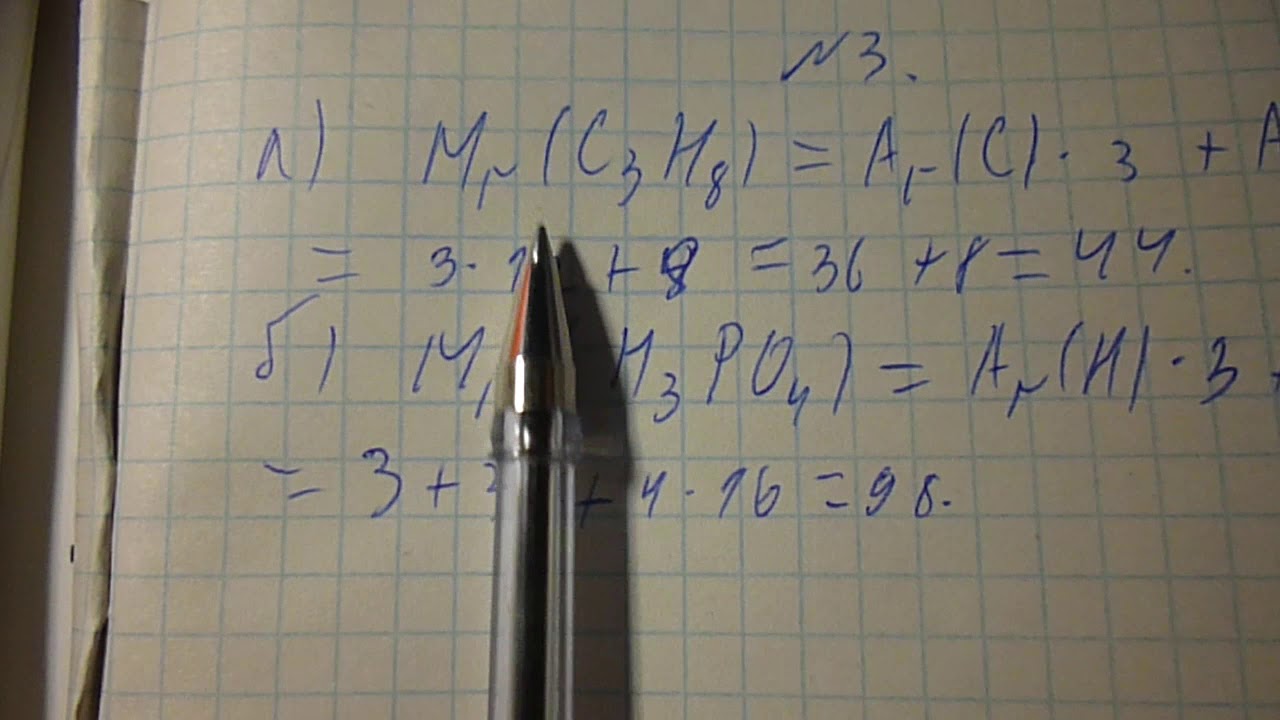 №3.
а) Mr(C₃H₈) = Ar(C) · 3 + A
= 3 · 12 + 8 = 36 + 8 = 44.
б) Mr H₃PO₄) = Ar(H) · 3 +
= 3 + 3 + 4 · 16 = 98.